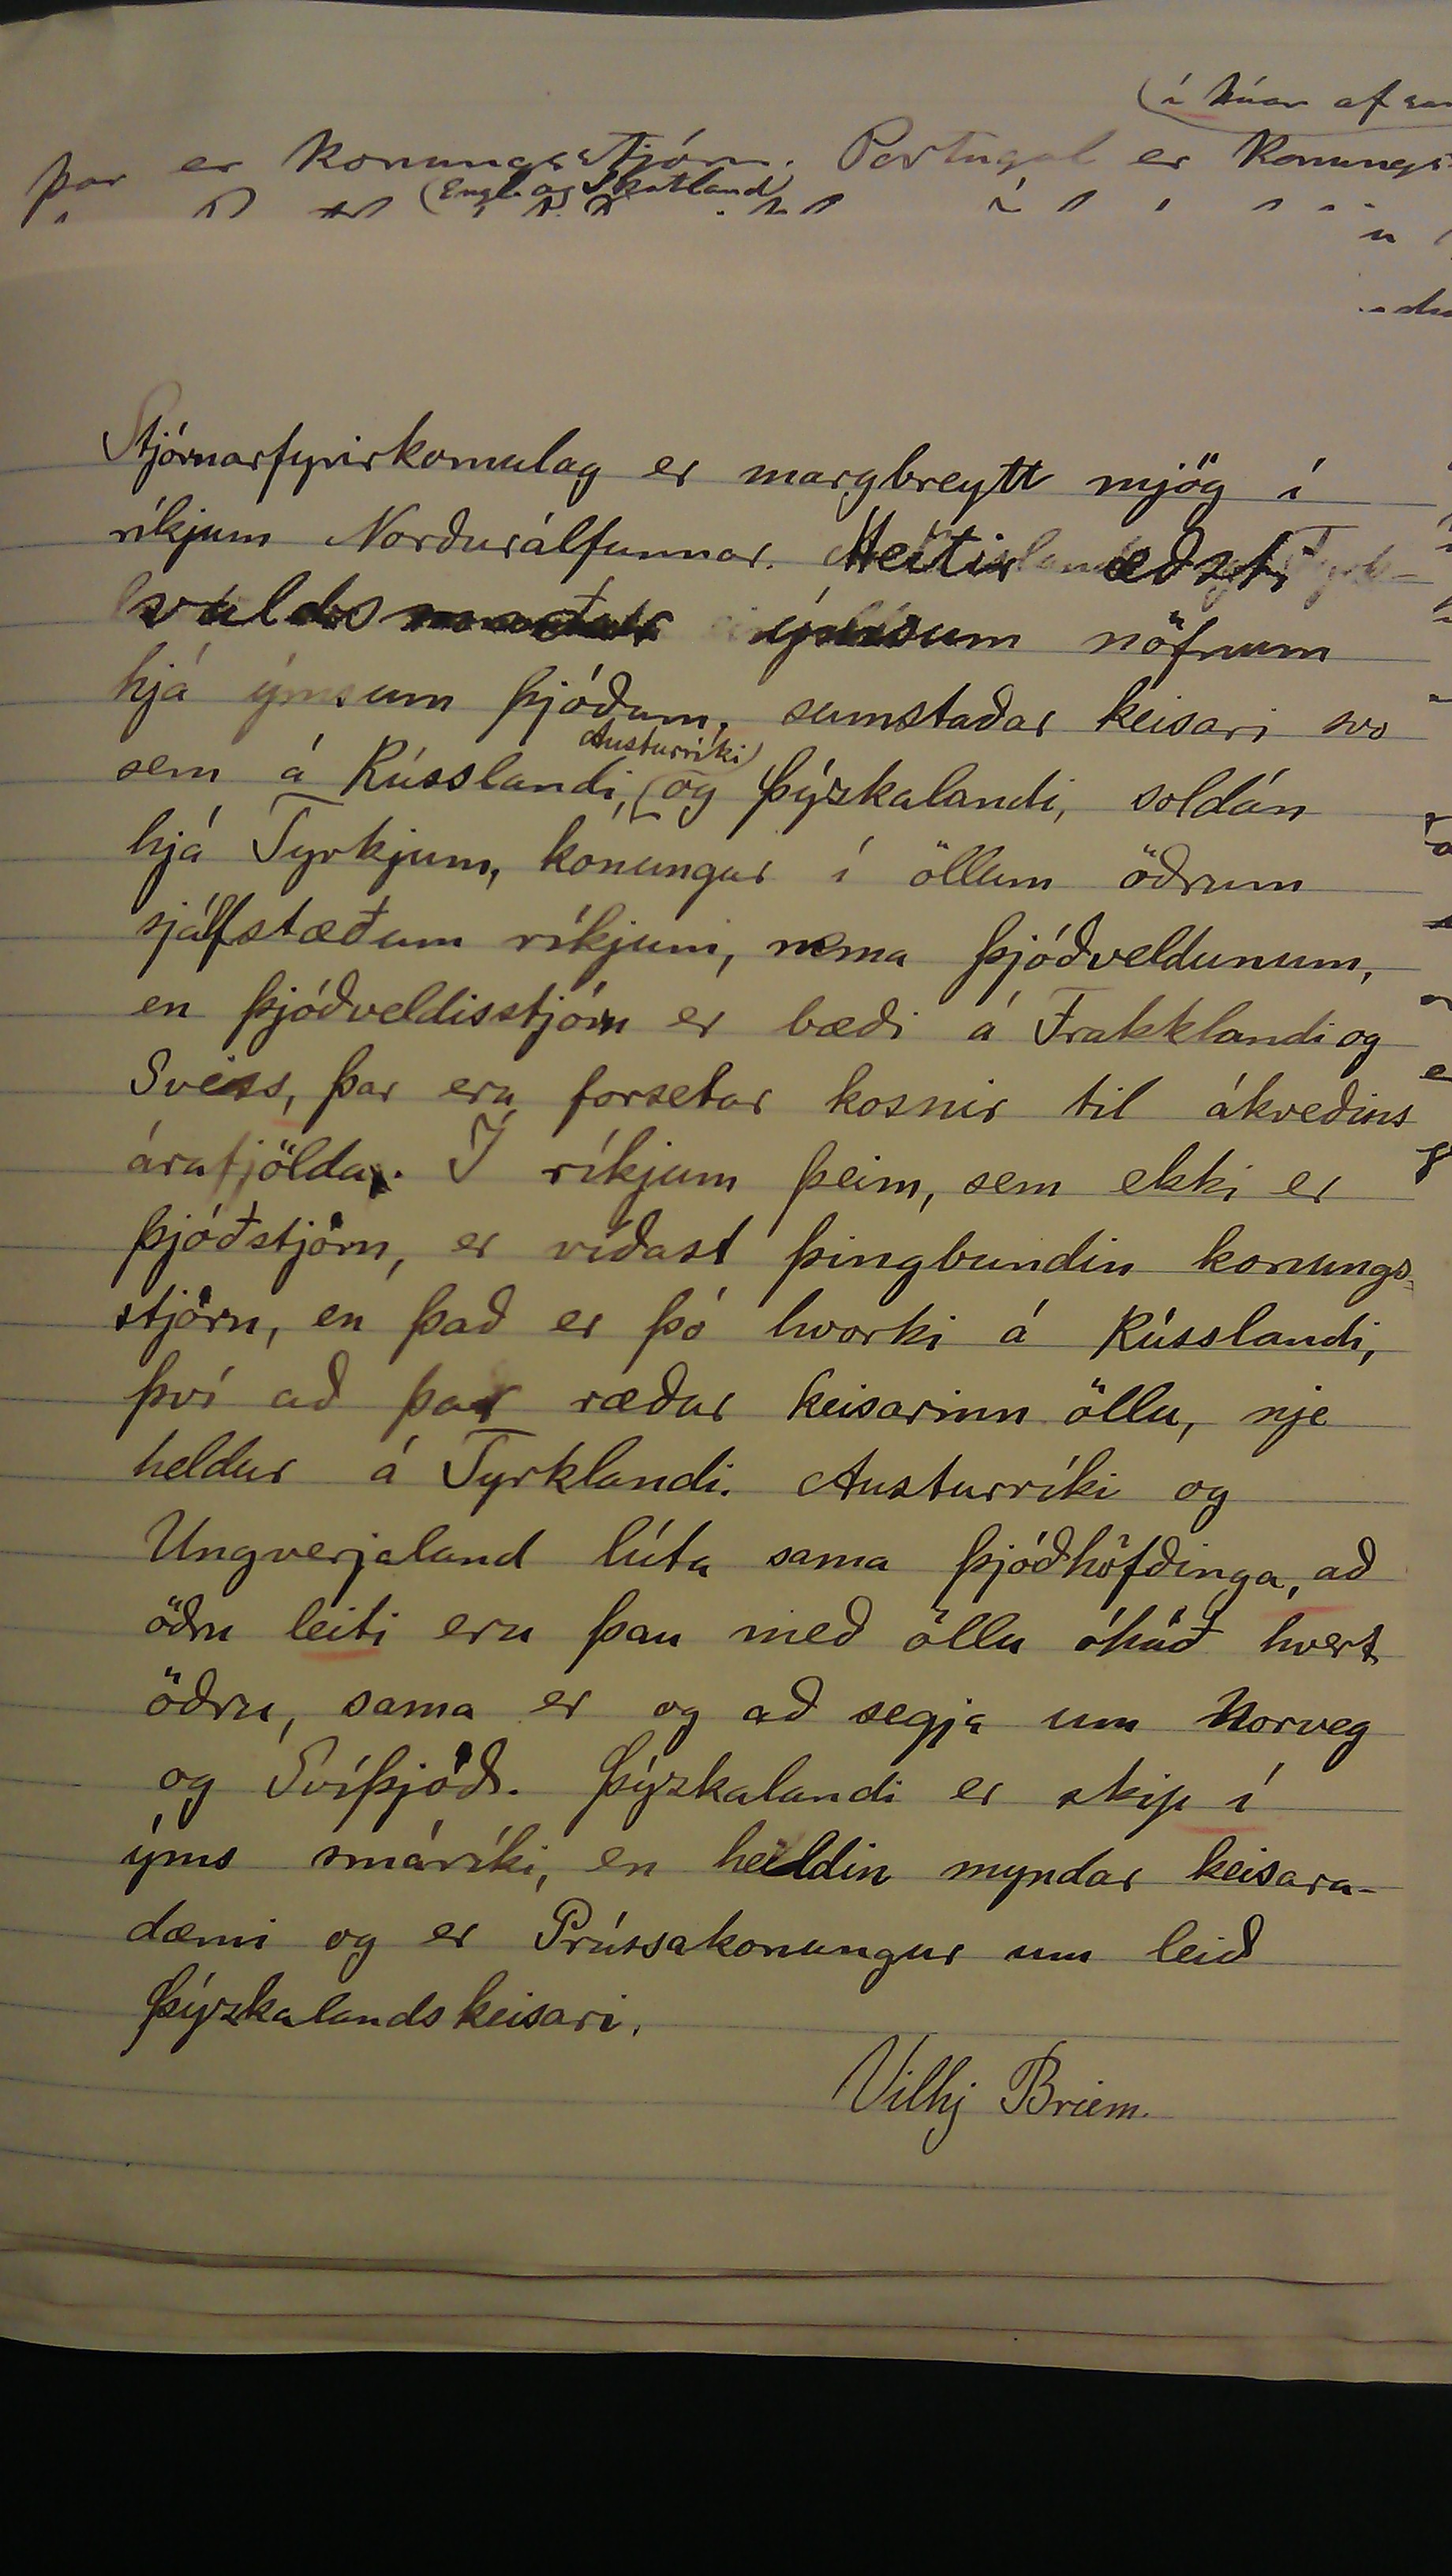 (í búar af
þar er Konungsstjórn. Portugal er Konungs-
(Engl. og Skotland)
Stjórnarfyrirkomulag er margbreytt mjög í
ríkjum Norðurálfunnar. Heitir æðsti
valdsmaður ýmsum nöfnum
hjá ýmsum þjóðum, sumstaðar keisari svo
Austurríki)
sem á Rússlandi, (og Þýzkalandi, soldán
hjá Tyrkjum, konungur í öllum öðrum
sjálfstæðum ríkjum, nema þjóðveldunum,
en þjóðveldisstjórn er bæði á Frakklandi og
Sveiss, þar eru forsetar kosnir til ákveðins
árafjölda. Í ríkjum þeim, sem ekki er
þjóðstjórn, er víðast þingbundin konungs-
stjórn, en það er þó hvorki á Rússlandi,
því að þar ræður keisarinn öllu, nje
heldur á Tyrklandi. Austurríki og
Ungverjaland lúta sama þjóðhöfðinga, að
öðru leiti eru þau með öllu óháð hvert
öðru, sama er og að segja um Norveg
og Svíþjóð. Þýzkalandi er skip í
ýms smáríki, en heildin myndar keisara-
dæmi og er Prússakonungur um leið
Þýzkalandskeisari.
Vilhj Briem.